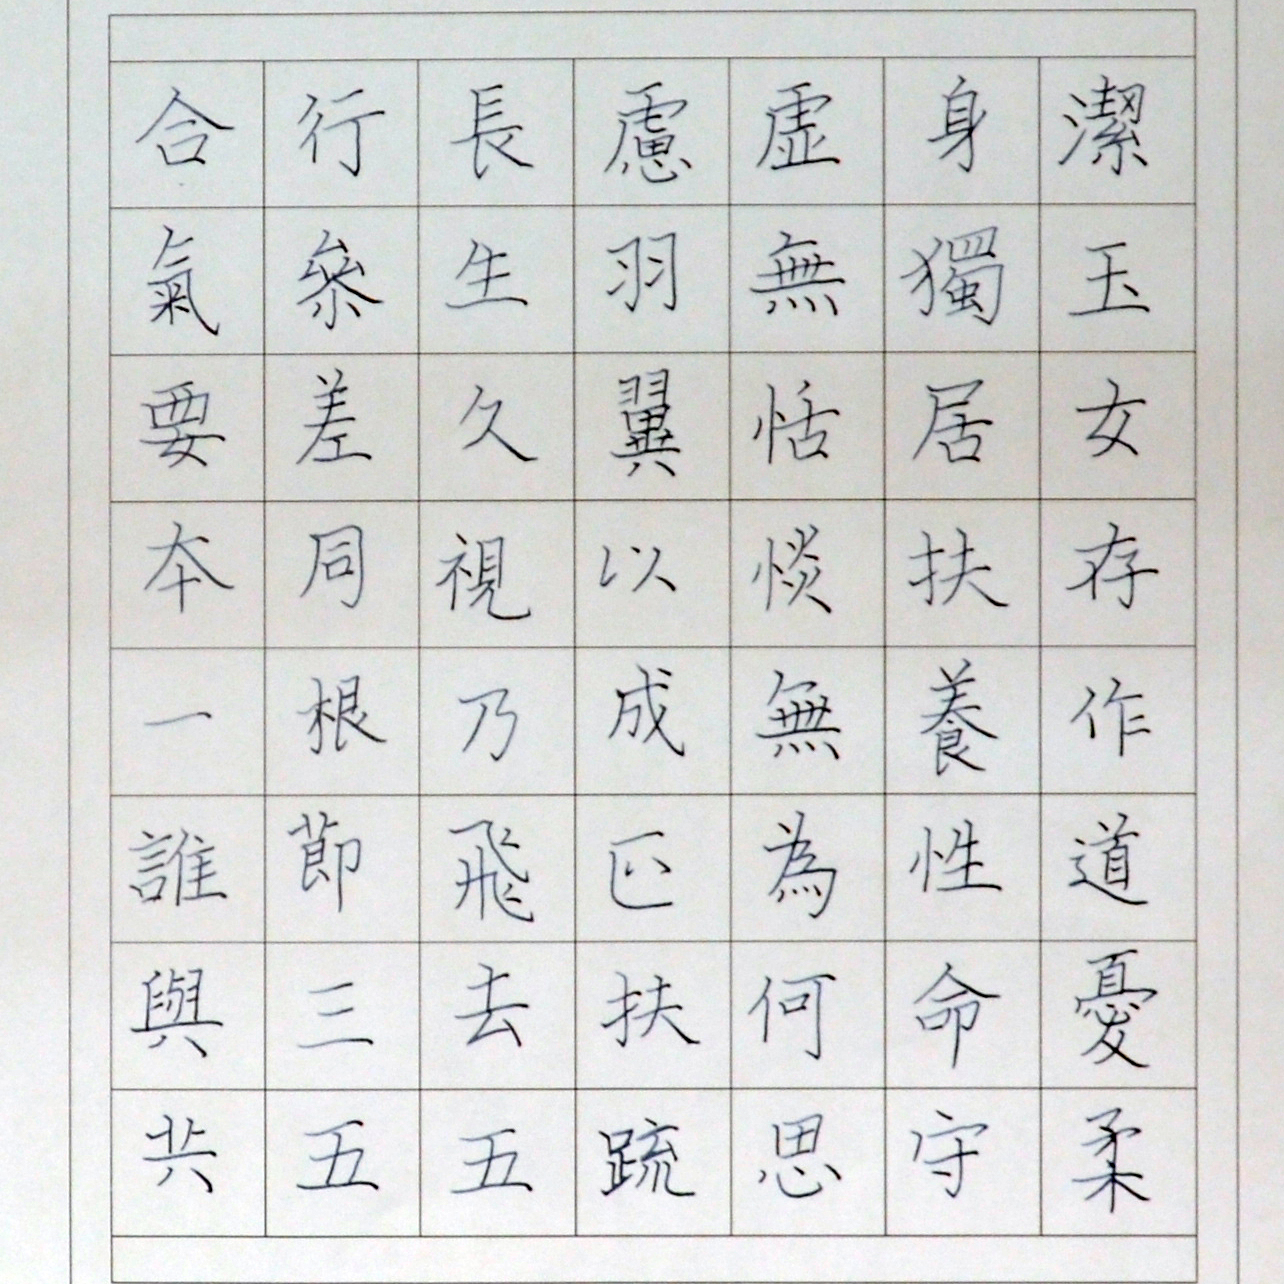 潔玉女存作道憂柔
身獨居扶養性命守
虛無恬惔無為何思
慮羽翼以成匹扶疏
長生久視乃飛去五
行參差同根節三五
合氣要本一誰與共